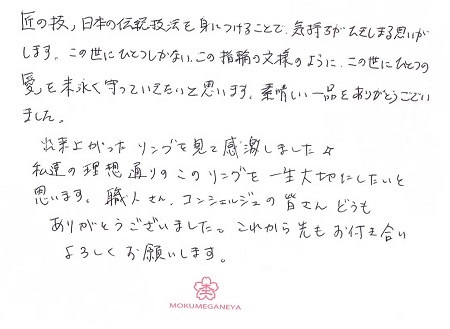 匠の技，日本の伝統技法を身につけることで、気持ちがひきしまる思いが
します。この世にひとつしかない、この指輪の文様のように、この世にひとつの
愛を末永く守っていきたいと思います。素晴しい一品をありがとうござい
ました。
出来上がったリングを見て感激しました☆
私達の理想通りのこのリングを一生大切にしたいと
思います。職人さん、コンシェルジュの皆さんどうも
ありがとうございました。これから先もお付き合い
よろしくお願いします。
MOKUMEGANEYA